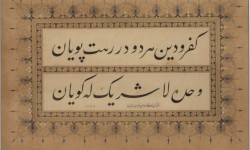 کفر و دین هر دو در رهت پویان
وحده لا شریک له گویان